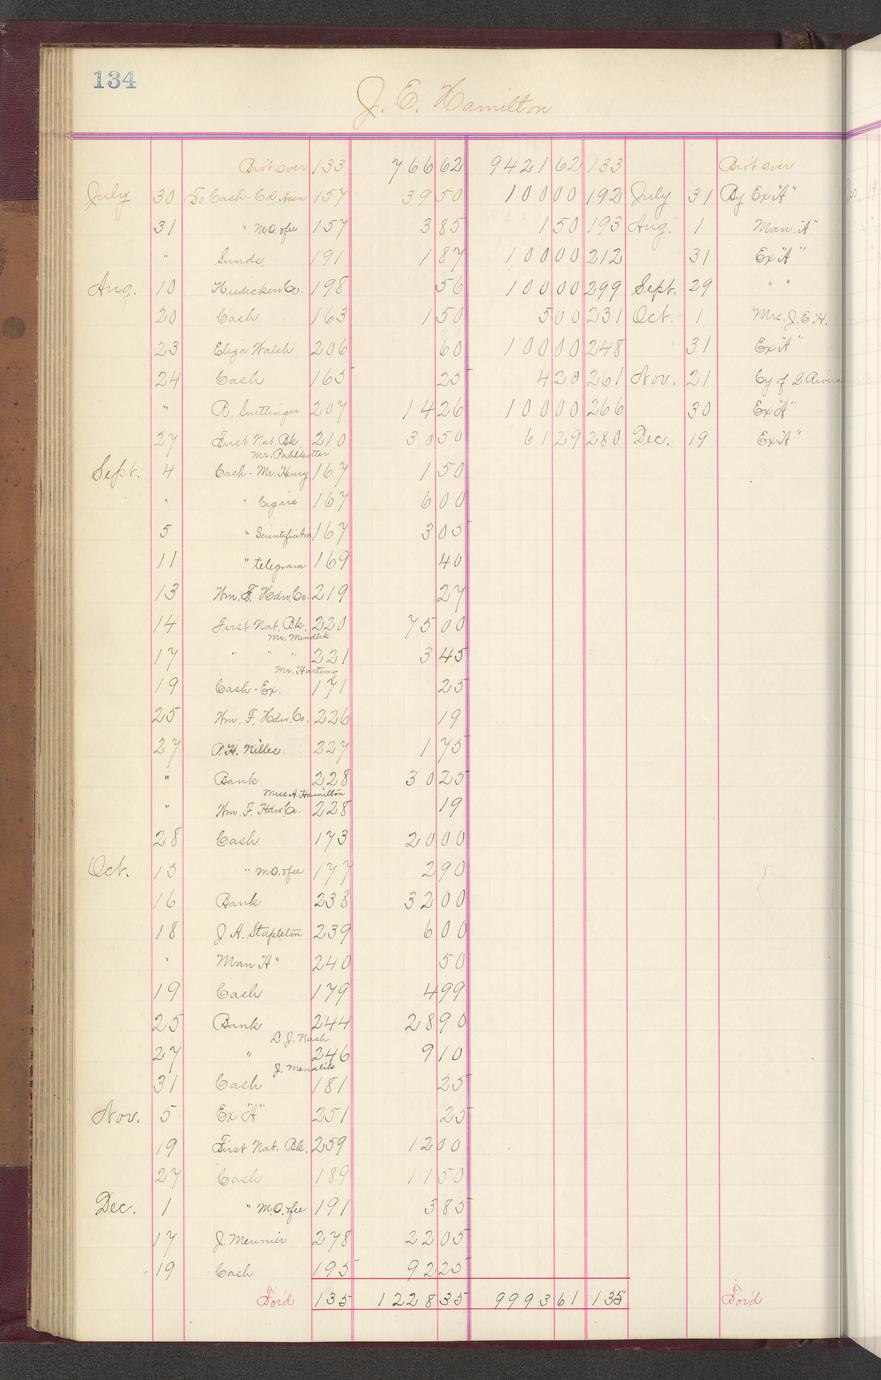 134
J. E. Hamilton
Bro't over 133 766 62 9421 62 133 Bro't over
July 30 To Cash - 157 39 50 100 00 192 July 31 By Ex "A"
31 " M.O. & fee 157 3 85 1 50 193 Aug. 1 Man. "A"
" Sunds 191 1 87 100 00 212 31 Ex "A"
Aug. 10 Co. 198 56 100 00 299 Sept. 29 " "
20 Cash 163 1 50 5 00 231 Oct. 1 Mrs. J. E. H.
23 Eliza Walsh 206 60 100 00 248 31 Ex "A"
24 Cash 165 25 4 20 261 Nov. 21 Cy of D
" R. Suttinger 207 14 26 100 00 266 30 Ex "A"
27 First Nat. Bk. 210 30 50 61 29 280 Dec. 19 Ex "A"
Mr. Pahlkotter
Sept. 4 Cash - Mr. Henry 167 1 50
" " Cigars 167 6 00
5 " Scientific Am 167 3 05
11 " telegram 169 40
13 Wm. F. Hdw. Co. 219 27
14 First Nat. Bk. 220 75 00
Mr. Mindlik
17 " " " 221 3 45
Mr. Hartung
19 Cash - Ex. 171 25
25 Wm. F. Hdw. Co. 226 19
27 P. H. Nilles 227 1 75
" Bank 228 30 25
Miss A. Hamilton
" Wm. F. Hdw. Co. 228 19
28 Cash 173 20 00
Oct. 15 " M.O. & fee 177 2 90
16 Bank 238 32 00
18 J. A. Stapleton 239 6 00
" Man "A" 240 50
19 Cash 179 4 99
25 Bank 244 28 90
D. J. Nash
27 " 246 9 10
J. Mendlik
31 Cash 181 25
Nov. 5 Ex "A" 251 25
19 First Nat. Bk. 259 12 00
27 Cash 189 11 50
Dec. 1 " M.O. & fee 191 3 85
17 J. Meunier 278 22 05
19 Cash 195 92 25
For'd 135 1228 35 9993 61 135 For'd